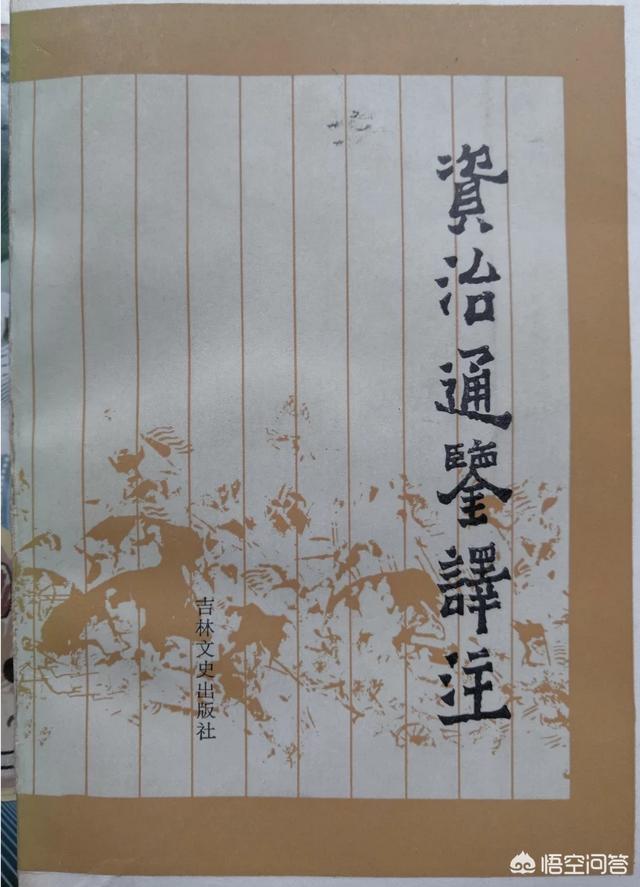 資治通鑒譯注
吉林文史出版社
悟空问答